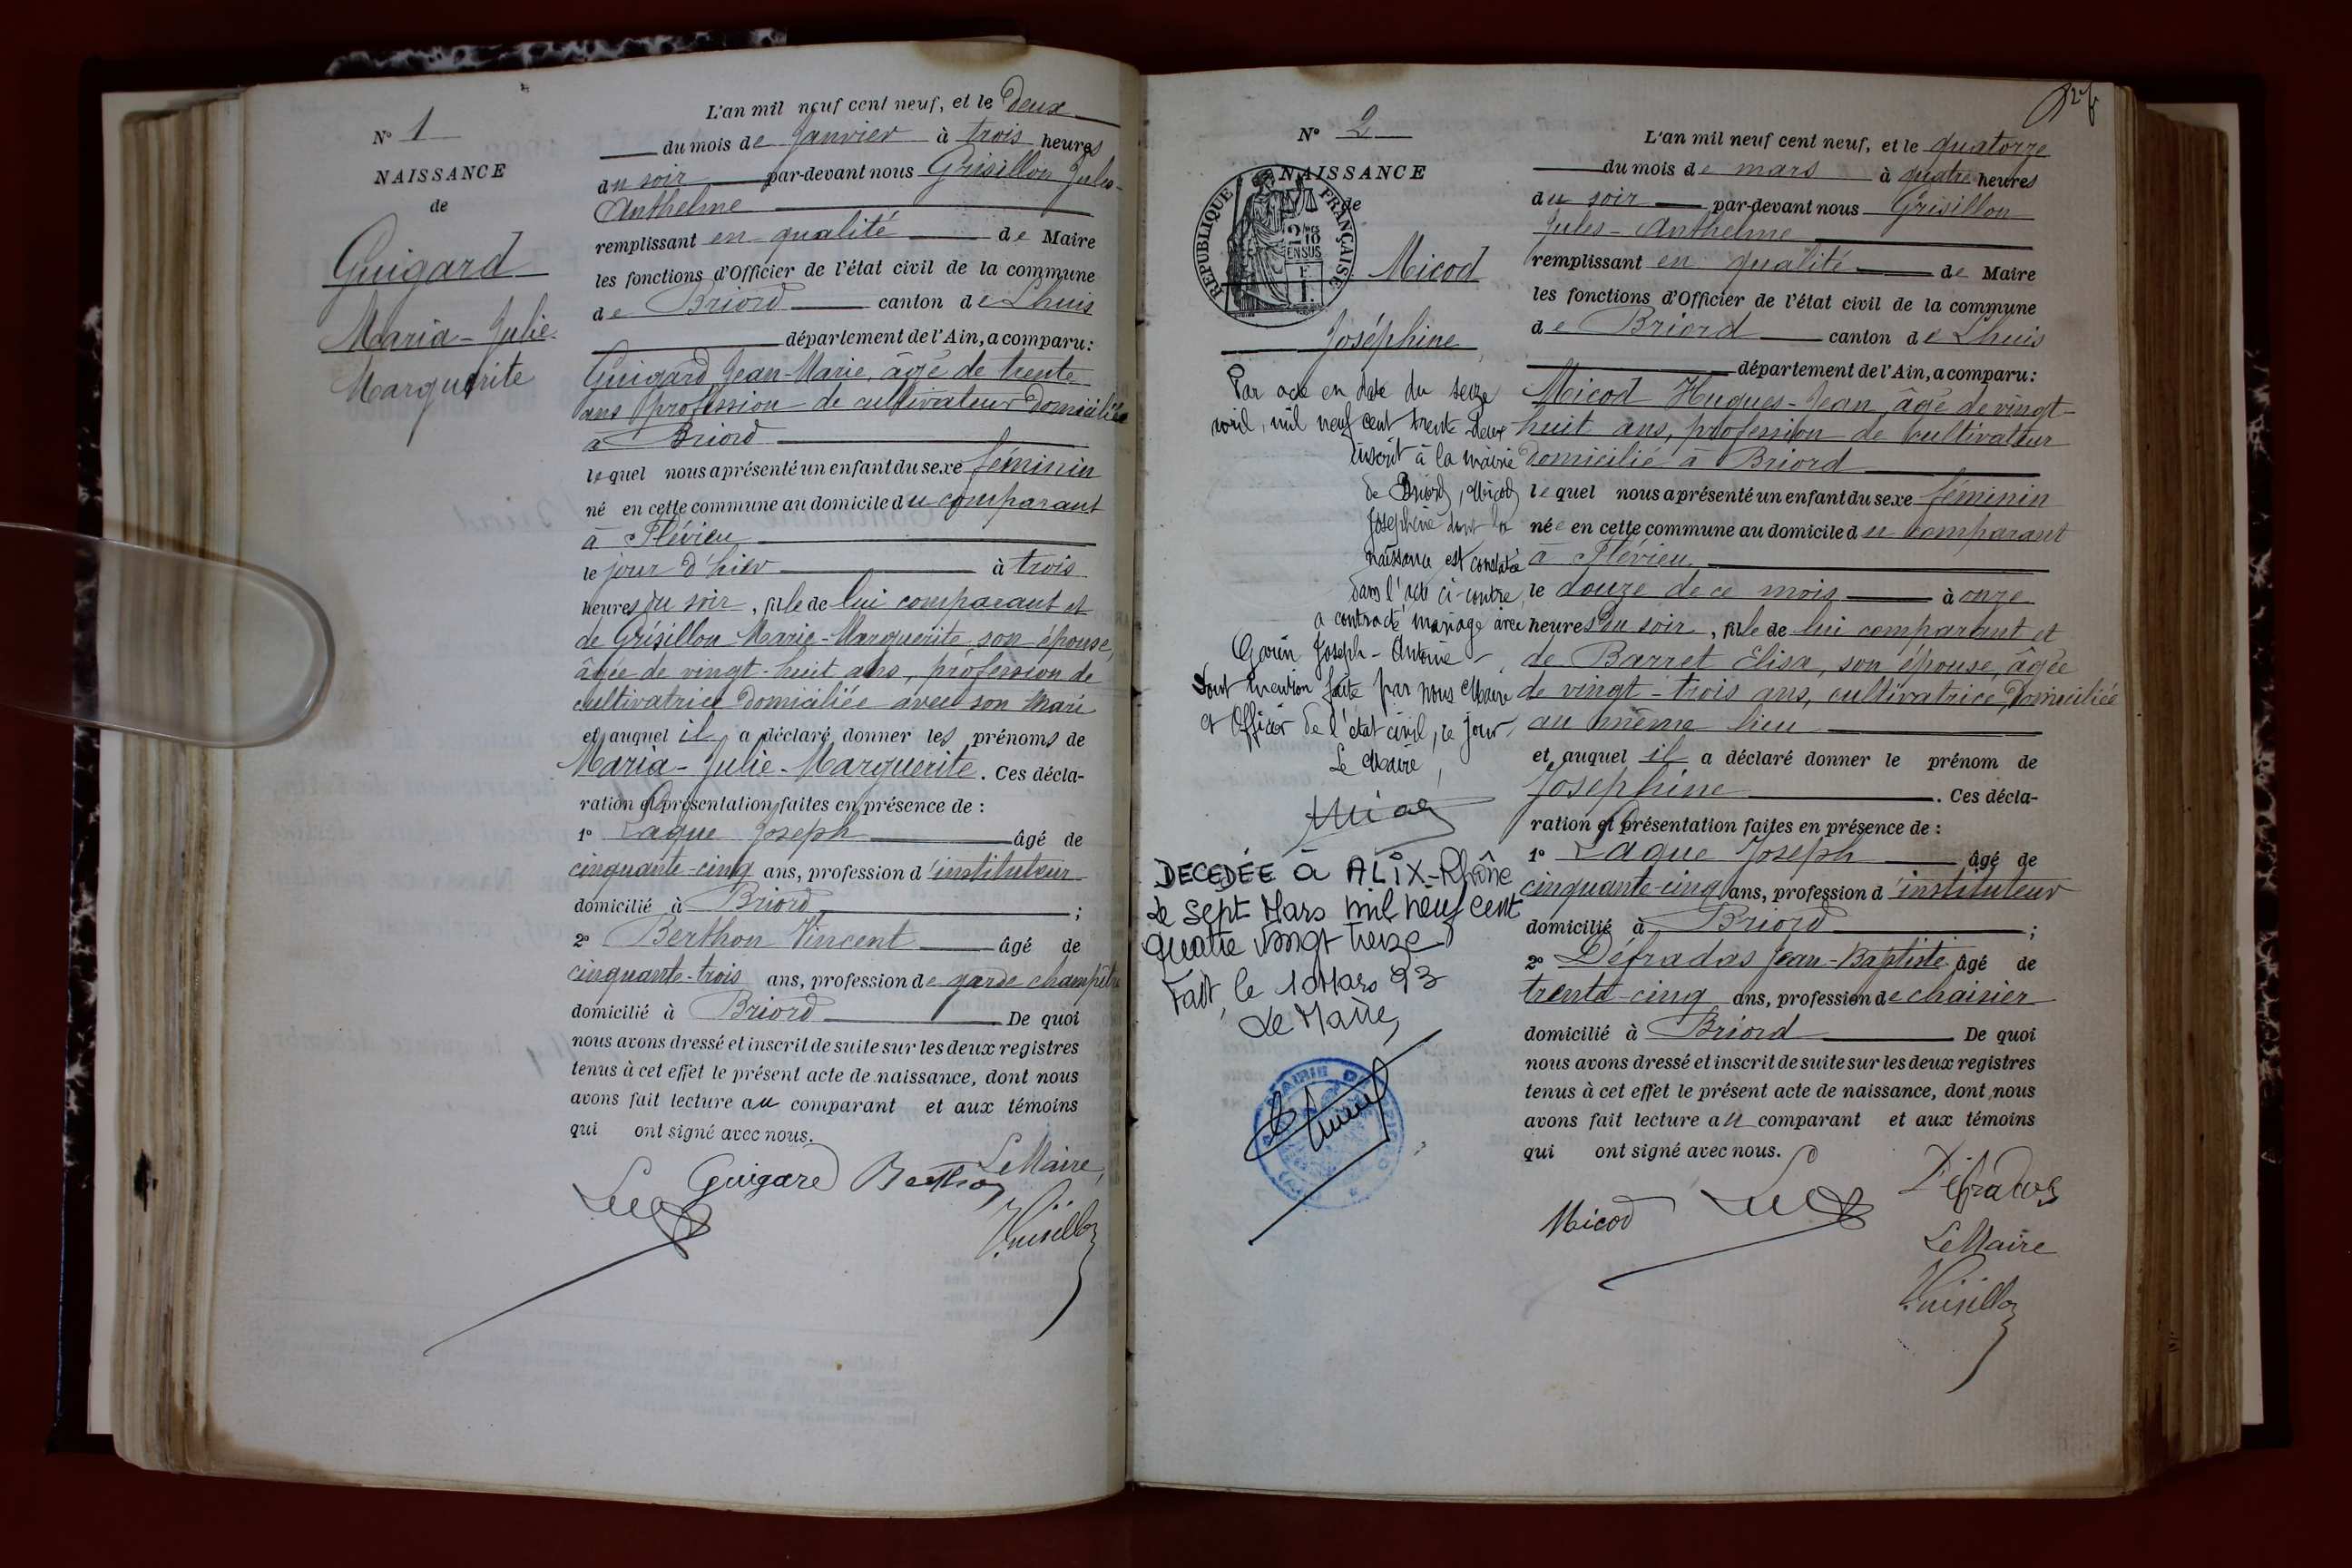 N° 1
NAISSANCE
de
Guigard
Maria-Julie-
Marguerite
L'an mil neuf cent neuf, et le deux
du mois de Janvier à trois heures
du soir par-devant nous Grisillon Jules-
Anthelme
remplissant en qualité de Maire
les fonctions d'Officier de l'état civil de la commune
de Briord canton de Lhuis
département de l'Ain, a comparu:
Guigard Jean-Marie, âgé de trente
ans profession de cultivateur domicilié
à Briord
lequel nous a présenté un enfant du sexe féminin
né en cette commune au domicile du comparant
à Flévieu
le jour d'hier à trois
heures du soir, fille de lui comparant et
de Grisillon Marie-Marguerite son épouse,
âgée de vingt-huit ans, profession de
cultivatrice domiciliée avec son mari
et auquel il a déclaré donner les prénoms de
Maria-Julie-Marguerite. Ces décla-
ration et présentation faites en présence de :
1° Laque Joseph âgé de
cinquante-cinq ans, profession d'instituteur
domicilié à Briord ;
2° Berthon Vincent âgé de
cinquante-trois ans, profession de garde champêtre
domicilié à Briord De quoi
nous avons dressé et inscrit de suite sur les deux registres
tenus à cet effet le présent acte de naissance, dont nous
avons fait lecture au comparant et aux témoins
qui ont signé avec nous.
Le Maire,
Guigard Berthon
Grisillon
N° 2
NAISSANCE
de
REPUBLIQUE FRANÇAISE
2/10 EN SUS
Micod
Joséphine
Par acte en date du seize
avril, mil neuf cent trente-deux
inscrit à la mairie
de Briord, Micod
Joséphine dont la
naissance est constatée
dans l'acte ci-contre,
a contracté mariage avec
Joseph-Antoine
Dont mention faite par nous Maire
et Officier de l'état civil, ce jour
Le Maire,
DECEDÉE à ALIX-Rhône
Le sept Mars mil neuf cent
quatre vingt treize
Fait, le 10 Mars 93
Le Maire,
MAIRIE DE
L'an mil neuf cent neuf, et le quatorze
du mois de mars à quatre heures
du soir par-devant nous Grisillon
Jules-Anthelme
remplissant en qualité de Maire
les fonctions d'Officier de l'état civil de la commune
de Briord canton de Lhuis
département de l'Ain, a comparu:
Micod Hugues-Jean, âgé de vingt-
huit ans, profession de cultivateur
domicilié à Briord
lequel nous a présenté un enfant du sexe féminin
née en cette commune au domicile du comparant
à Flévieu
le douze de ce mois à onze
heures du soir, fille de lui comparant et
de Barret Elisa, son épouse, âgée
de vingt-trois ans, cultivatrice, domiciliée
au même lieu
et auquel il a déclaré donner le prénom de
Joséphine. Ces décla-
ration et présentation faites en présence de :
1° Laque Joseph âgé de
cinquante-cinq ans, profession d'instituteur
domicilié à Briord ;
2° Défradas Jean-Baptiste âgé de
trente-cinq ans, profession de chaisier
domicilié à Briord De quoi
nous avons dressé et inscrit de suite sur les deux registres
tenus à cet effet le présent acte de naissance, dont nous
avons fait lecture au comparant et aux témoins
qui ont signé avec nous.
Défradas
Micod
Le Maire
Grisillon